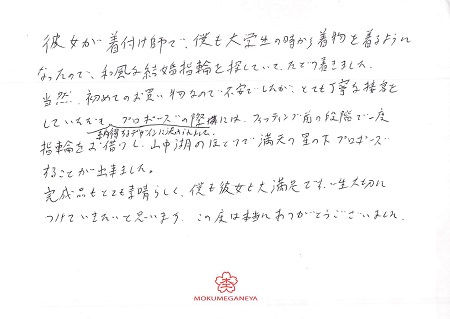 彼女が着付け師で、僕も大学生の時から着物を着るように
なったので、和風な結婚指輪を探していて、たどり着きました。
当然、初めてのお買い物なので不安でしたが、とても丁寧な接客を
していただき、プロポーズの際には、フィッティング前の段階で一度
指輪をお借りし、山中湖のほとりで満天の星の下プロポーズ
することが出来ました。
完成品もとても素晴らしく、僕も彼女も大満足です。一生大切に
つけていきたいと思います。この度は本当にありがとうございました。
MOKUMEGANEYA